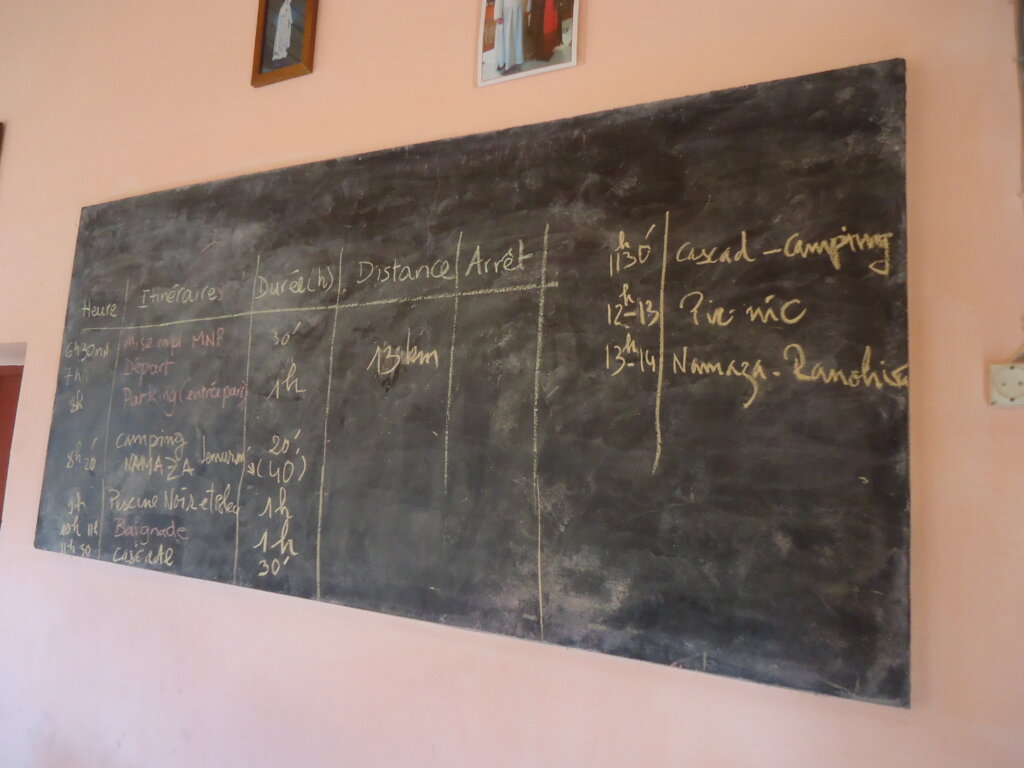 Heure Itinéraires Durée(h) Distance Arrêt
6h30mn Mise empl MNP 30'
7h Départ 13 km
8h Parking (entrée parc) 1h
camping 20'
8h20' NAMAZA lemurien (40')
9h Piscine Noir et bleu 1h
10h 11h Baignade 1h
11h30 cascade 30'
11h30' Cascad - Camping
12h-13 Pic-nic
13h-14 Namaza - Ranohira